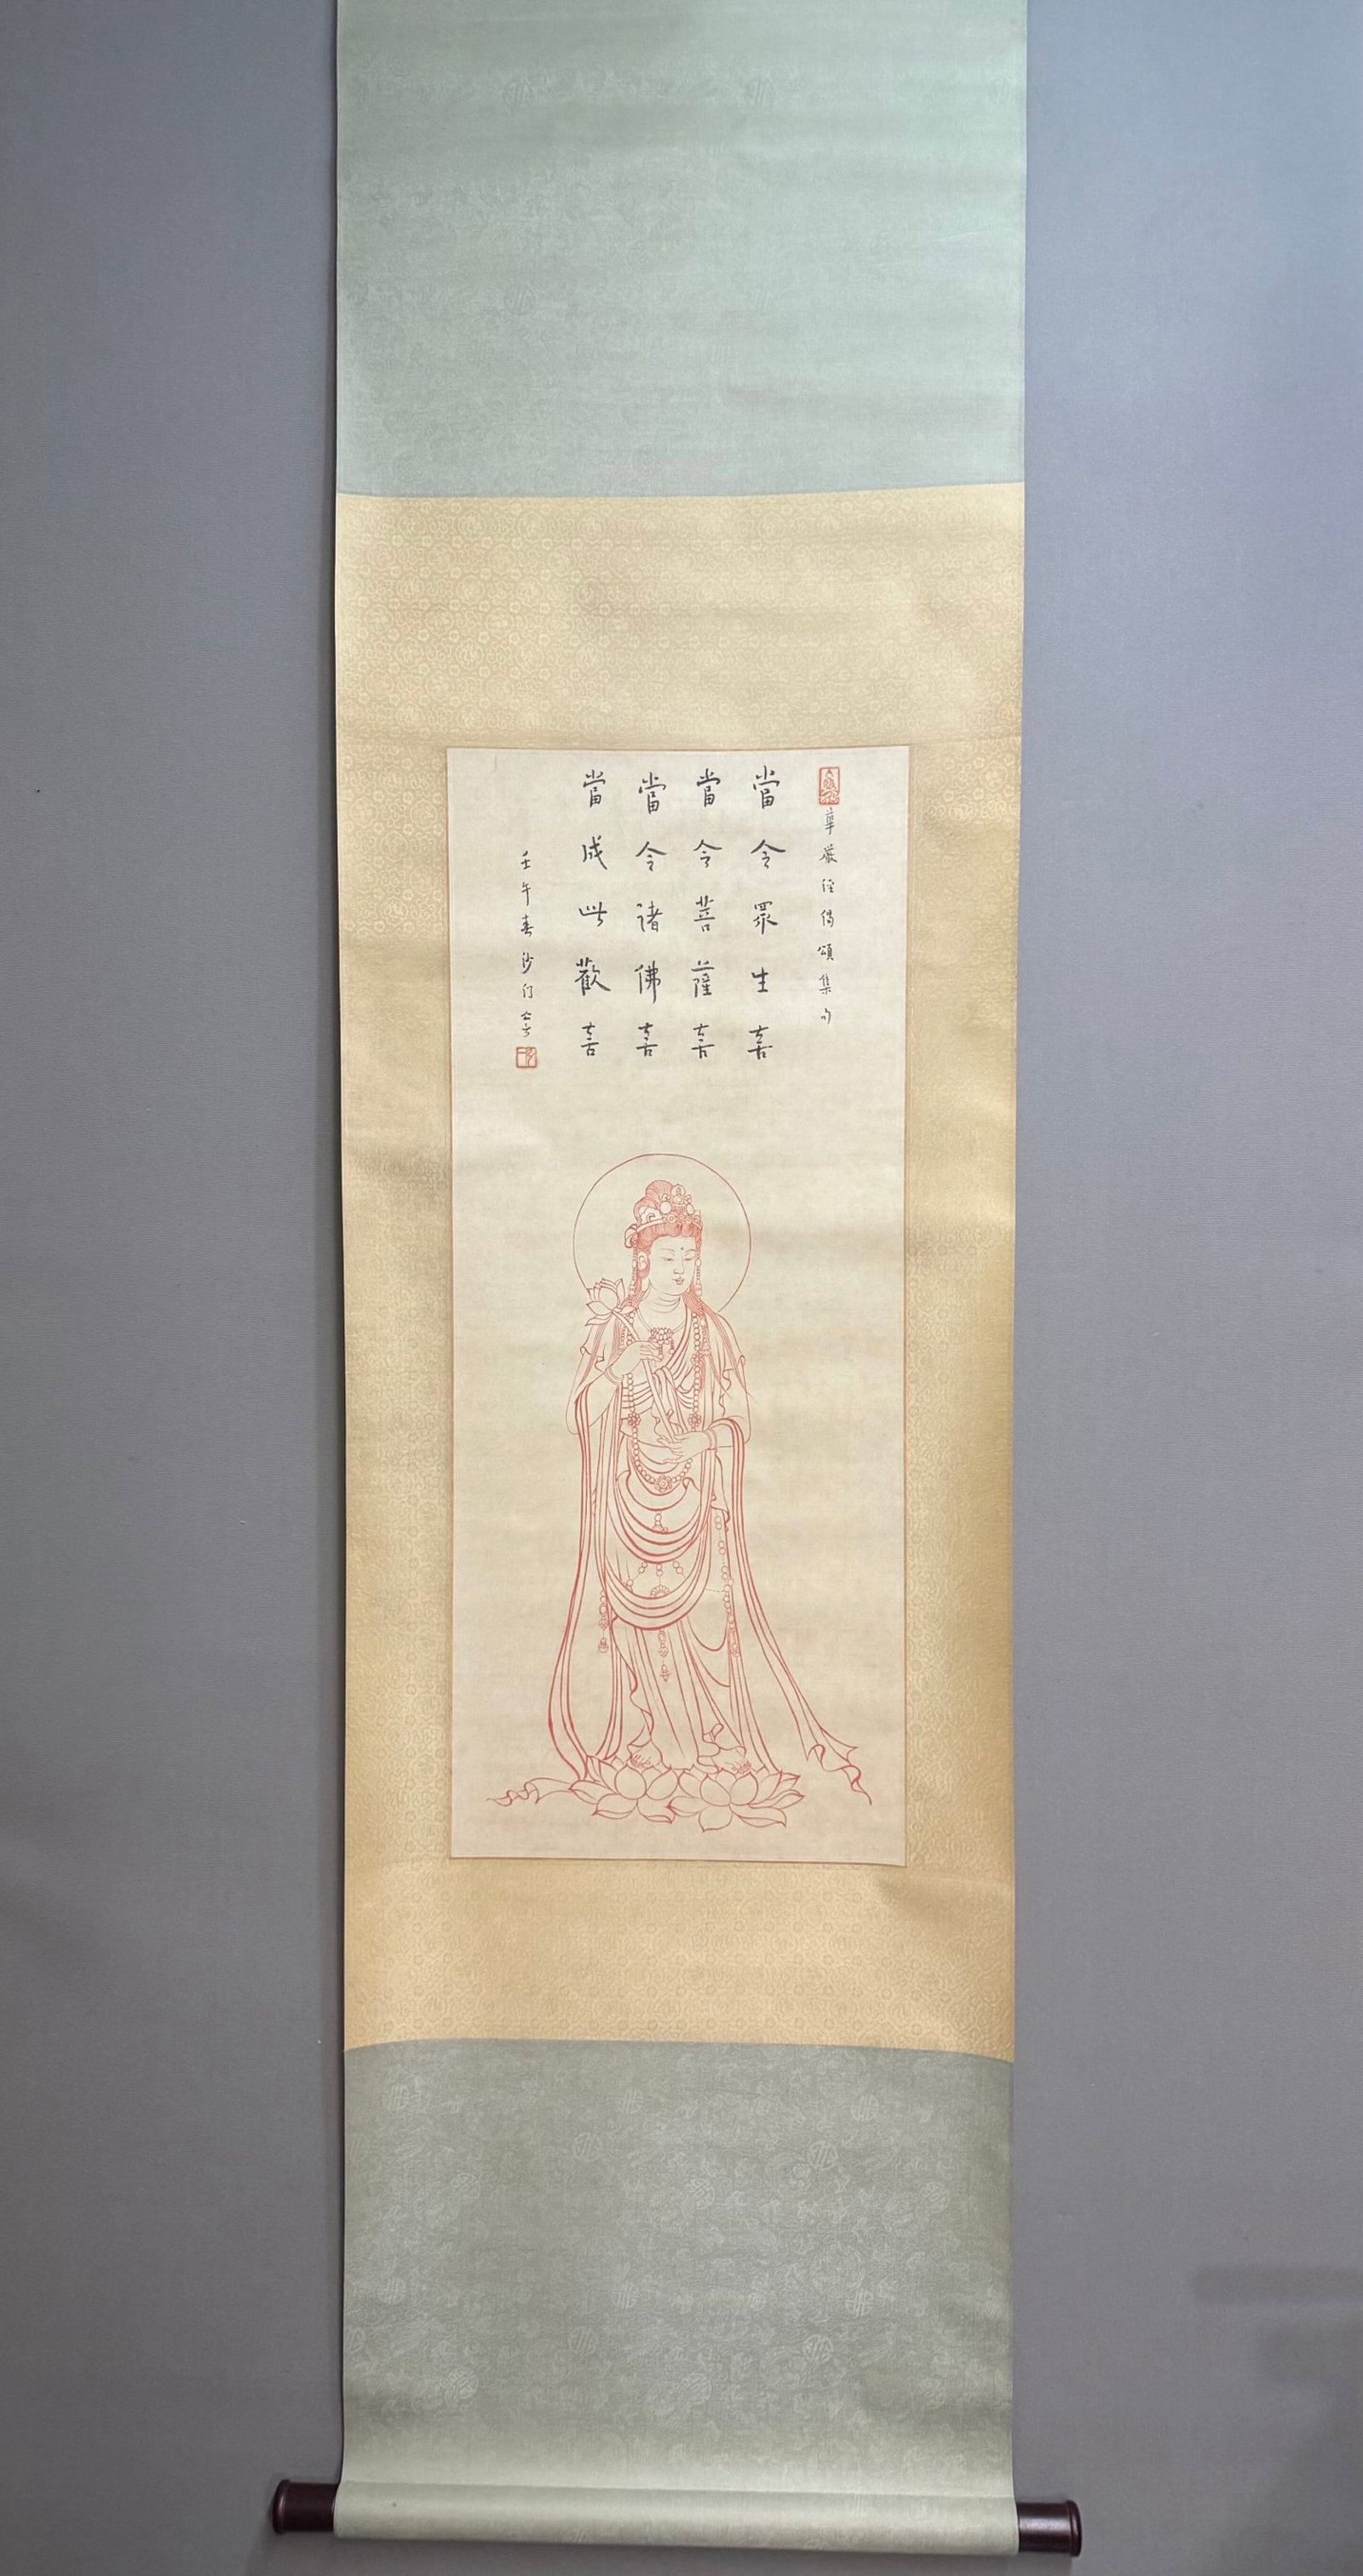 華嚴經偈頌集句
當令眾生喜
當令菩薩喜
當令諸佛喜
當成此歡喜
壬午春沙门